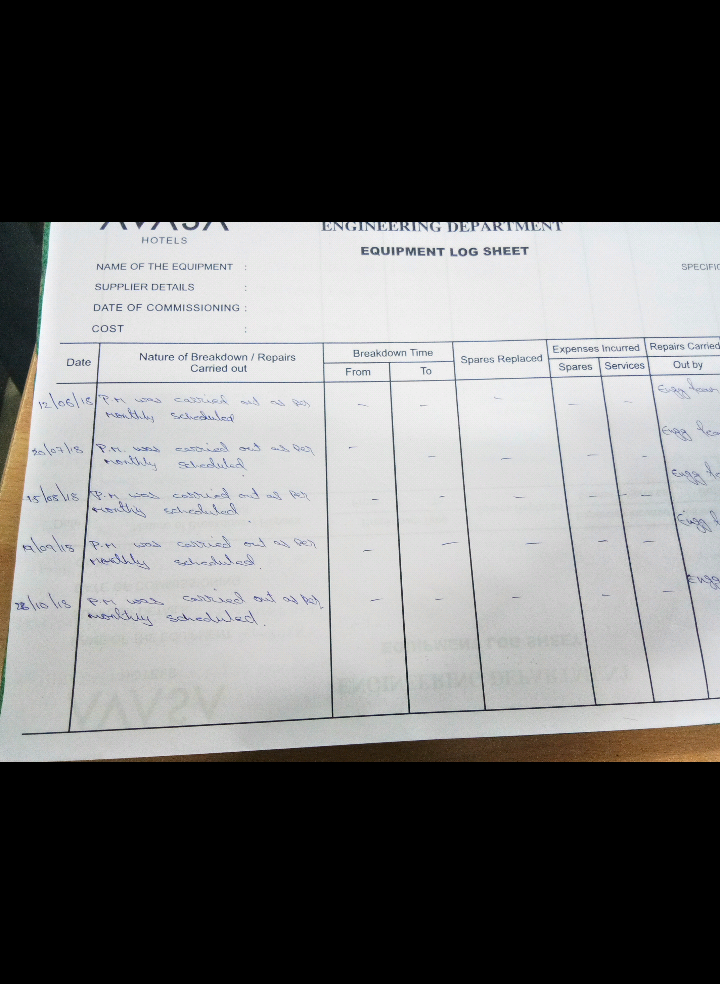 AVASA
HOTELS
ENGINEERING DEPARTMENT
EQUIPMENT LOG SHEET
NAME OF THE EQUIPMENT :
SPECIFIC
SUPPLIER DETAILS :
DATE OF COMMISSIONING :
COST :
Date
Nature of Breakdown / Repairs
Carried out
Breakdown Time
From
To
Spares Replaced
Expenses Incurred
Spares
Services
Repairs Carried
Out by
12/06/18 P.M was carried out as per - - - - - Engg team
monthly scheduled
20/07/18 P.M. was carried out as per - - - - - Engg
monthly scheduled
15/08/18 P.M was carried out as per - - - - - - Engg
monthly scheduled
/09/18 P.M was carried out as per - - - - - Engg
monthly scheduled.
28/10/18 P.M was carried out as per. - - - - - Engg
monthly scheduled.